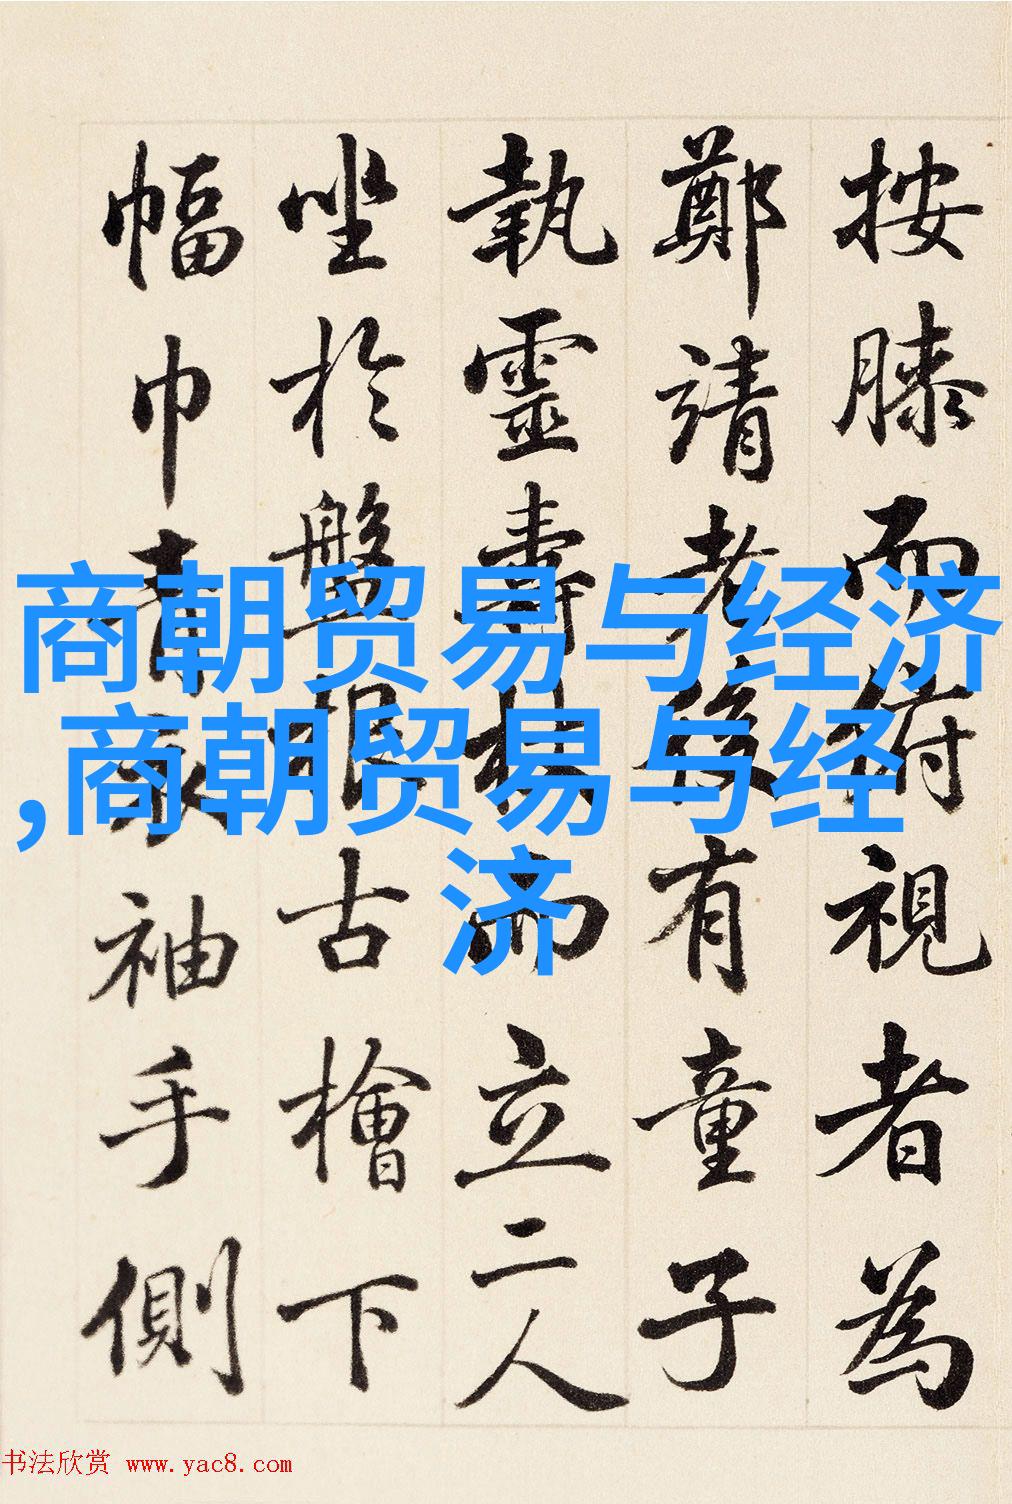 按膝而俯視者為
鄭靖老後有童子
執靈壽杖而立二人
坐於盤根古檜下
幅巾青衣袖手側
商朝贸易与经济
,商朝贸易与经
济
书法欣赏 www.yac8.com